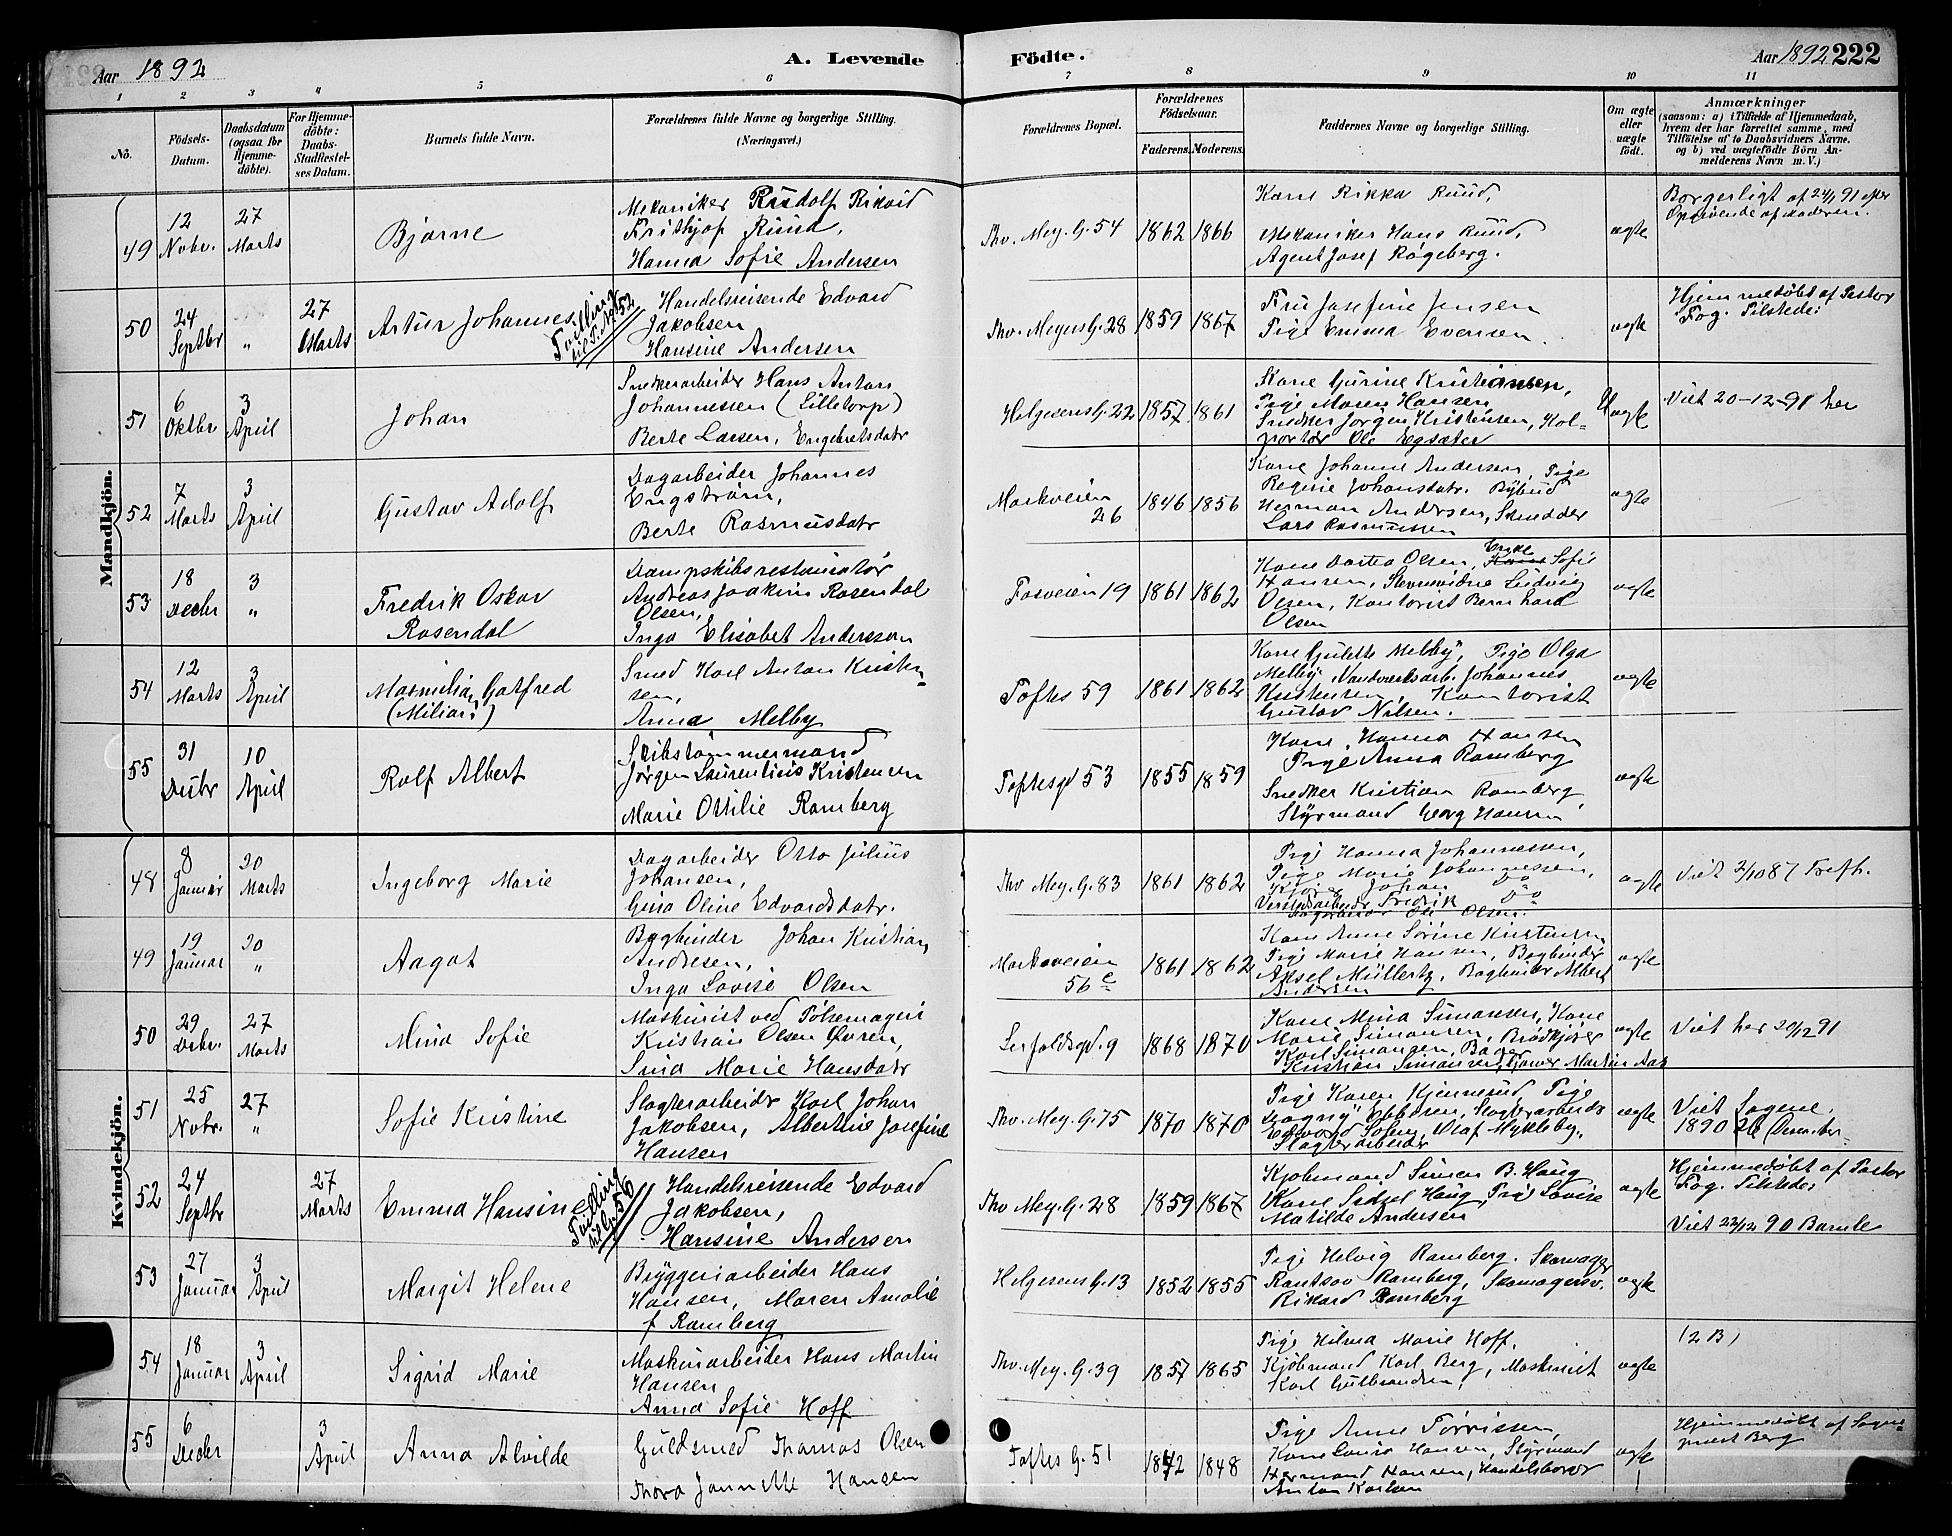 Aar 1892
A. Levende
Födte.
Aar 1892 222
1 2 3 4 5 6 7 8 9 10 11
No.
Födsels-Datum.
Daabsdatum (ogsaa for Hjemme-döbte).
For Hjemme-döbte: Daabs-Stadfæstel-ses Datum.
Barnets fulde Navn.
Forældrenes fulde Navne og borgerlige Stilling. (Næringsvei.)
Forældrenes Bopæl.
Forældrenes Födselsaar.
Faderens. Moderens.
Faddernes Navne og borgerlige Stilling.
Om ægte eller uægte födt.
Anmærkninger
(saasom: a) i Tilfælde af Hjemmedaab,
hvem der har forrettet samme, med
Tilföielse af to Daabsvidners Navne.
og b) ved uægtefödte Börn An-
melderens Navn m. V.)
Mandkjön.
49
12 Novbr.
27 Marts
Bjarne
Mekaniker Rudolf Rikard
Frithjof Ruud,
Hanna Sofie Andersen
Thv. Mey. G. 54
1862 1866
Kone Rikka Ruud,
Mekaniker Hans Ruud,
Agent Josef Røgeberg.
ægte
Borgerligt af 24/1 91 efter
Opgivende af Moderen.
50
24 Septbr
"
27 Marts
Artur Johannes
Tvilling til P. No 52
Handelsreisende Edvard
Jakobsen
Hansine Andersen
Thv. Meyers G. 28
1859 1867
Fru Josefine Jensen
Pige Emma Evensen.
ægte
Hjemmedøbt af Pastor
Fog. Tilstede:
51
6 Oktbr
3 April
Johan
Snedkerarbeider Hans Anton
Johannessen (Lilletorp)
Berte Larsen, Engebretsdatr
Helgesens G. 22
1857 1861
Kone Gurine Kristiansen,
Pige Maren Hansen
Snedker Jørgen Kristensen, Kol-
portør Ole Egsæter
Uægte
Viet 20-12-91 her
52
7 Marts
3 April
Gustav Adolf
Dagarbeider Johannes
Engstrøm,
Berte Rasmusdatr
Markveien
26
1846 1856
Kone Johanne Andersen, Pige
Regine Johansdatr. Bybud
Herman Andersen, Skrædder
Lars Rasmussen
ægte
53
18 Decbr
3 "
Fredrik Oskar
Rosendal
Dampskibsrestauratør
Andreas Joakim Rosendal
Olsen,
Inga Elisabet Anderssen
Fosveien 19
1861 1862
Kone Dortea Olsen, Enke Sofie
Hansen, Stevnevidne Ludvig
Olsen, Kontorist Bernhard
Olsen
ægte
54
12 Marts
3 April
Maximilia, Gotfred
(Milian!)
Smed Karl Anton Kristen-
sen,
Anna Melby
Toftes 59
1861 1862
Kone Gulette Melby, Pige Olga
Melby, Vandværksarb. Johannes
Kristensen, Kontorist
Gustav Nilsen.
ægte
55
31 Decbr
10 April
Rolf Albert
Skibstømmermand
Jørgen Laurentius Kristensen
Marie Ottilie Ramberg
Toftesgd 53
1855 1859
Kone Hanna Hansen
Pige Anna Ramberg
Snedker Kristian Ramberg
Styrmand Georg Hansen
ægte
Kvindekjön.
48
8 Januar
20 Marts
Ingeborg Marie
Dagarbeider Otto Julius
Johansen,
Gina Oline Edvardsdatr.
Thv Mey. G. 83
1861 1862
Pige Hanna Johannessen,
Pige Marie Johannessen,
Johan Do
Fredrik Do
Ole Olsen.
ægte
Viet 2/10 87 Trefh.
49
19 Januar
20 "
Aagot
Bogbinder Johan Kristian
Andresen,
Inga Lovise Olsen
Markveien
56 c
1861 1862
Kone Anne Sørine Kristensen,
Pige Marie Hansen, Bogbinder
Aksel Müllertz, Bogbinder Albert
Andersen
ægte
50
29 Decbr.
27 Marts
Mina Sofie
Maskinist ved
Kristian Olsen
Sina Marie Hansdatr
Seilduksgd. 9
1868 1870
Kone Mina Simonsen, Kone
Marie Simonsen, Brødkjører
Karl Simonsen, Bager
Kristian Simonsen, Garver Martin Aas
ægte
Viet her 20/12 91
51
25 Novbr.
27 "
Sofie Kristine
Slagterarbeider Karl Johan
Jakobsen, Albertine Josefine
Hansen
Thv. Mey. G. 75
1870 1870
Pige Karen Kjennerud, Pige
Dagny Ebbesen, Slagterarbeider
Edvard Olaf Mykleby,
Slagterarbeider
ægte
Viet Sagene
1890
52
24 Septbr
27 Marts
Emma Hansine
Tvilling til G. 50
Handelsreisende Edvard
Jakobsen,
Hansine Andersen
Thv Mey. G. 28
1859 1867
Kjøbmand Simen B. Haug
Kone Sidsel Haug, Pige Lovise
Matilde Andersen
ægte
Hjemmedøbt af Pastor
Fog. Tilstede:
Viet 22/12 90 Bamle
53
27 Januar
3 April
Margit Helene
Bryggeriarbeider Hans
Hansen, Maren Amalie
f Ramberg
Helgesens G. 13
1852 1855
Pige Helvig Ramberg. Skomager
Rantsov Ramberg, Skomagersv.
Rikard Ramberg
ægte
54
18 Januar
3 April
Sigrid Marie
Maskinarbeider Hans Martin
Hansen
Anna Sofie Hoff
Thv. Mey. G. 39
1857 1865
Pige Hilma Marie Hoff.
Kjøbmand Karl Berg, Maskinist
Karl Gulbrandsen,
ægte
(2 B)
55
6 Decbr
3 April
Anna Alvilde
Guldsmed Thomas Olsen
Thora Jannette Hansen
Toftes G. 51
1842 1848
Pige Anne Torrissen,
Kone Lovise Hansen, Styrmand
Hermand Hansen, Handelsborger
Anton Karlsen
ægte
Hjemmedøbt af Sogne-
præst Berg